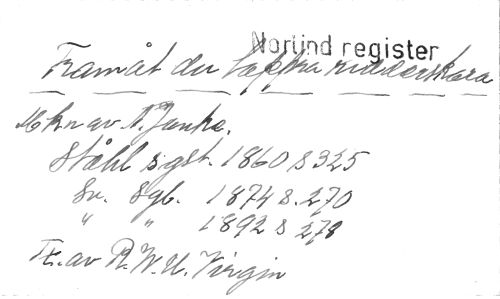 Norlind register
Framåt du tappra riddarskara
Mkn av A. Janke.
Ståhl sgst. 1860 s 325
Sv. Sgb. 1874 s. 270
" " 1892 s 278
Tr. av R. W. U. Virgin